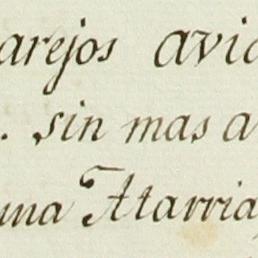 arejos avia
. sin mas a
una Atarria